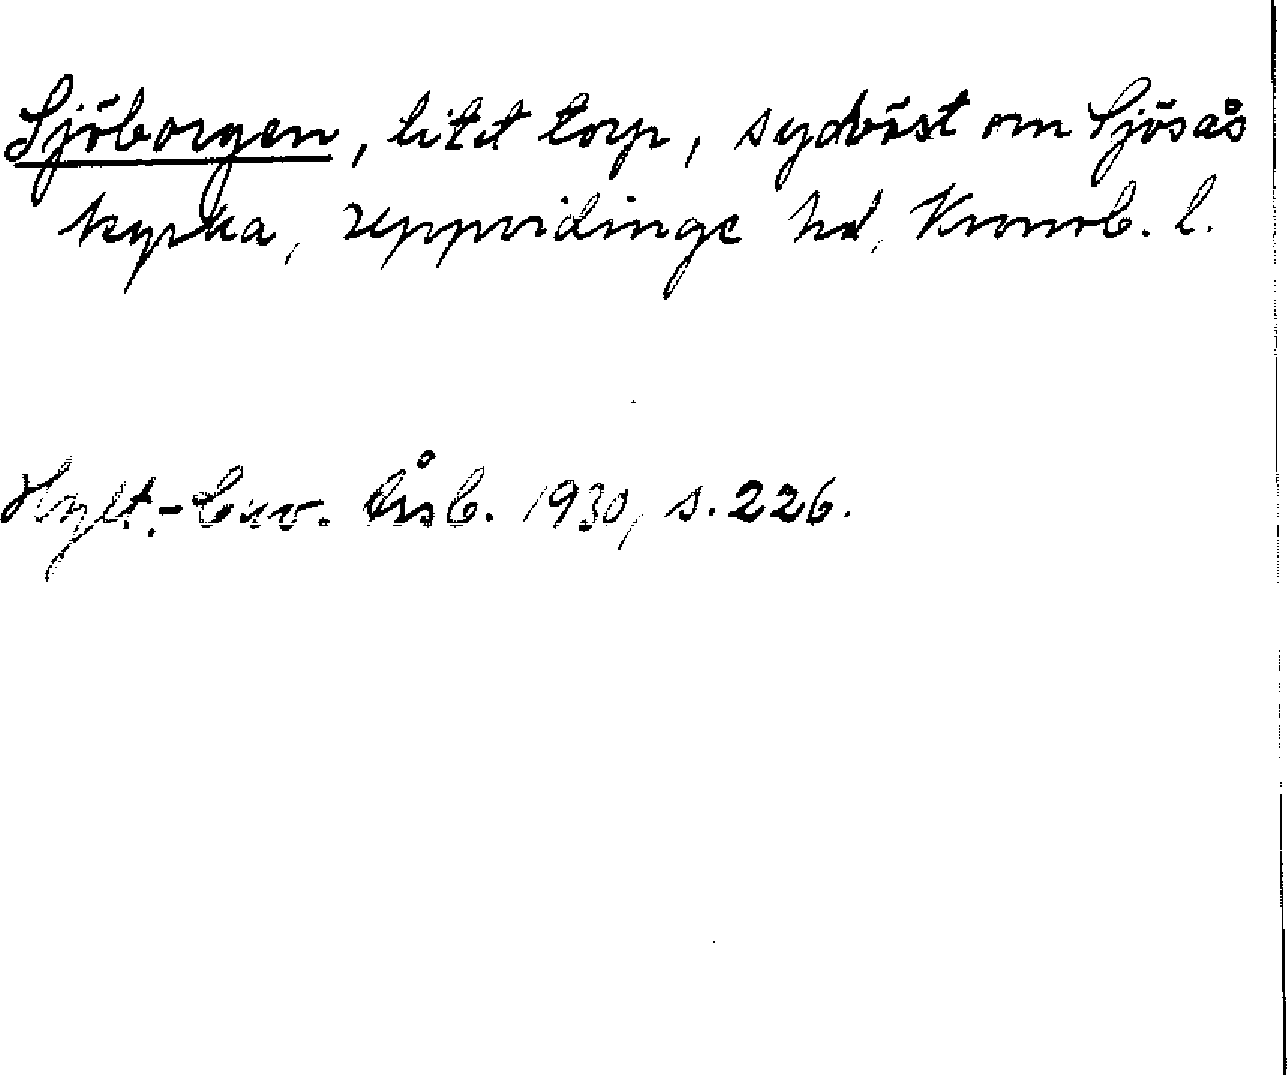 Sjöborgen, litet torp, sydväst om Sjösås
kyrka, Uppvidinge hd, Kronob. l.
Hylt.-Cav. Årsb. 1930, s. 226.